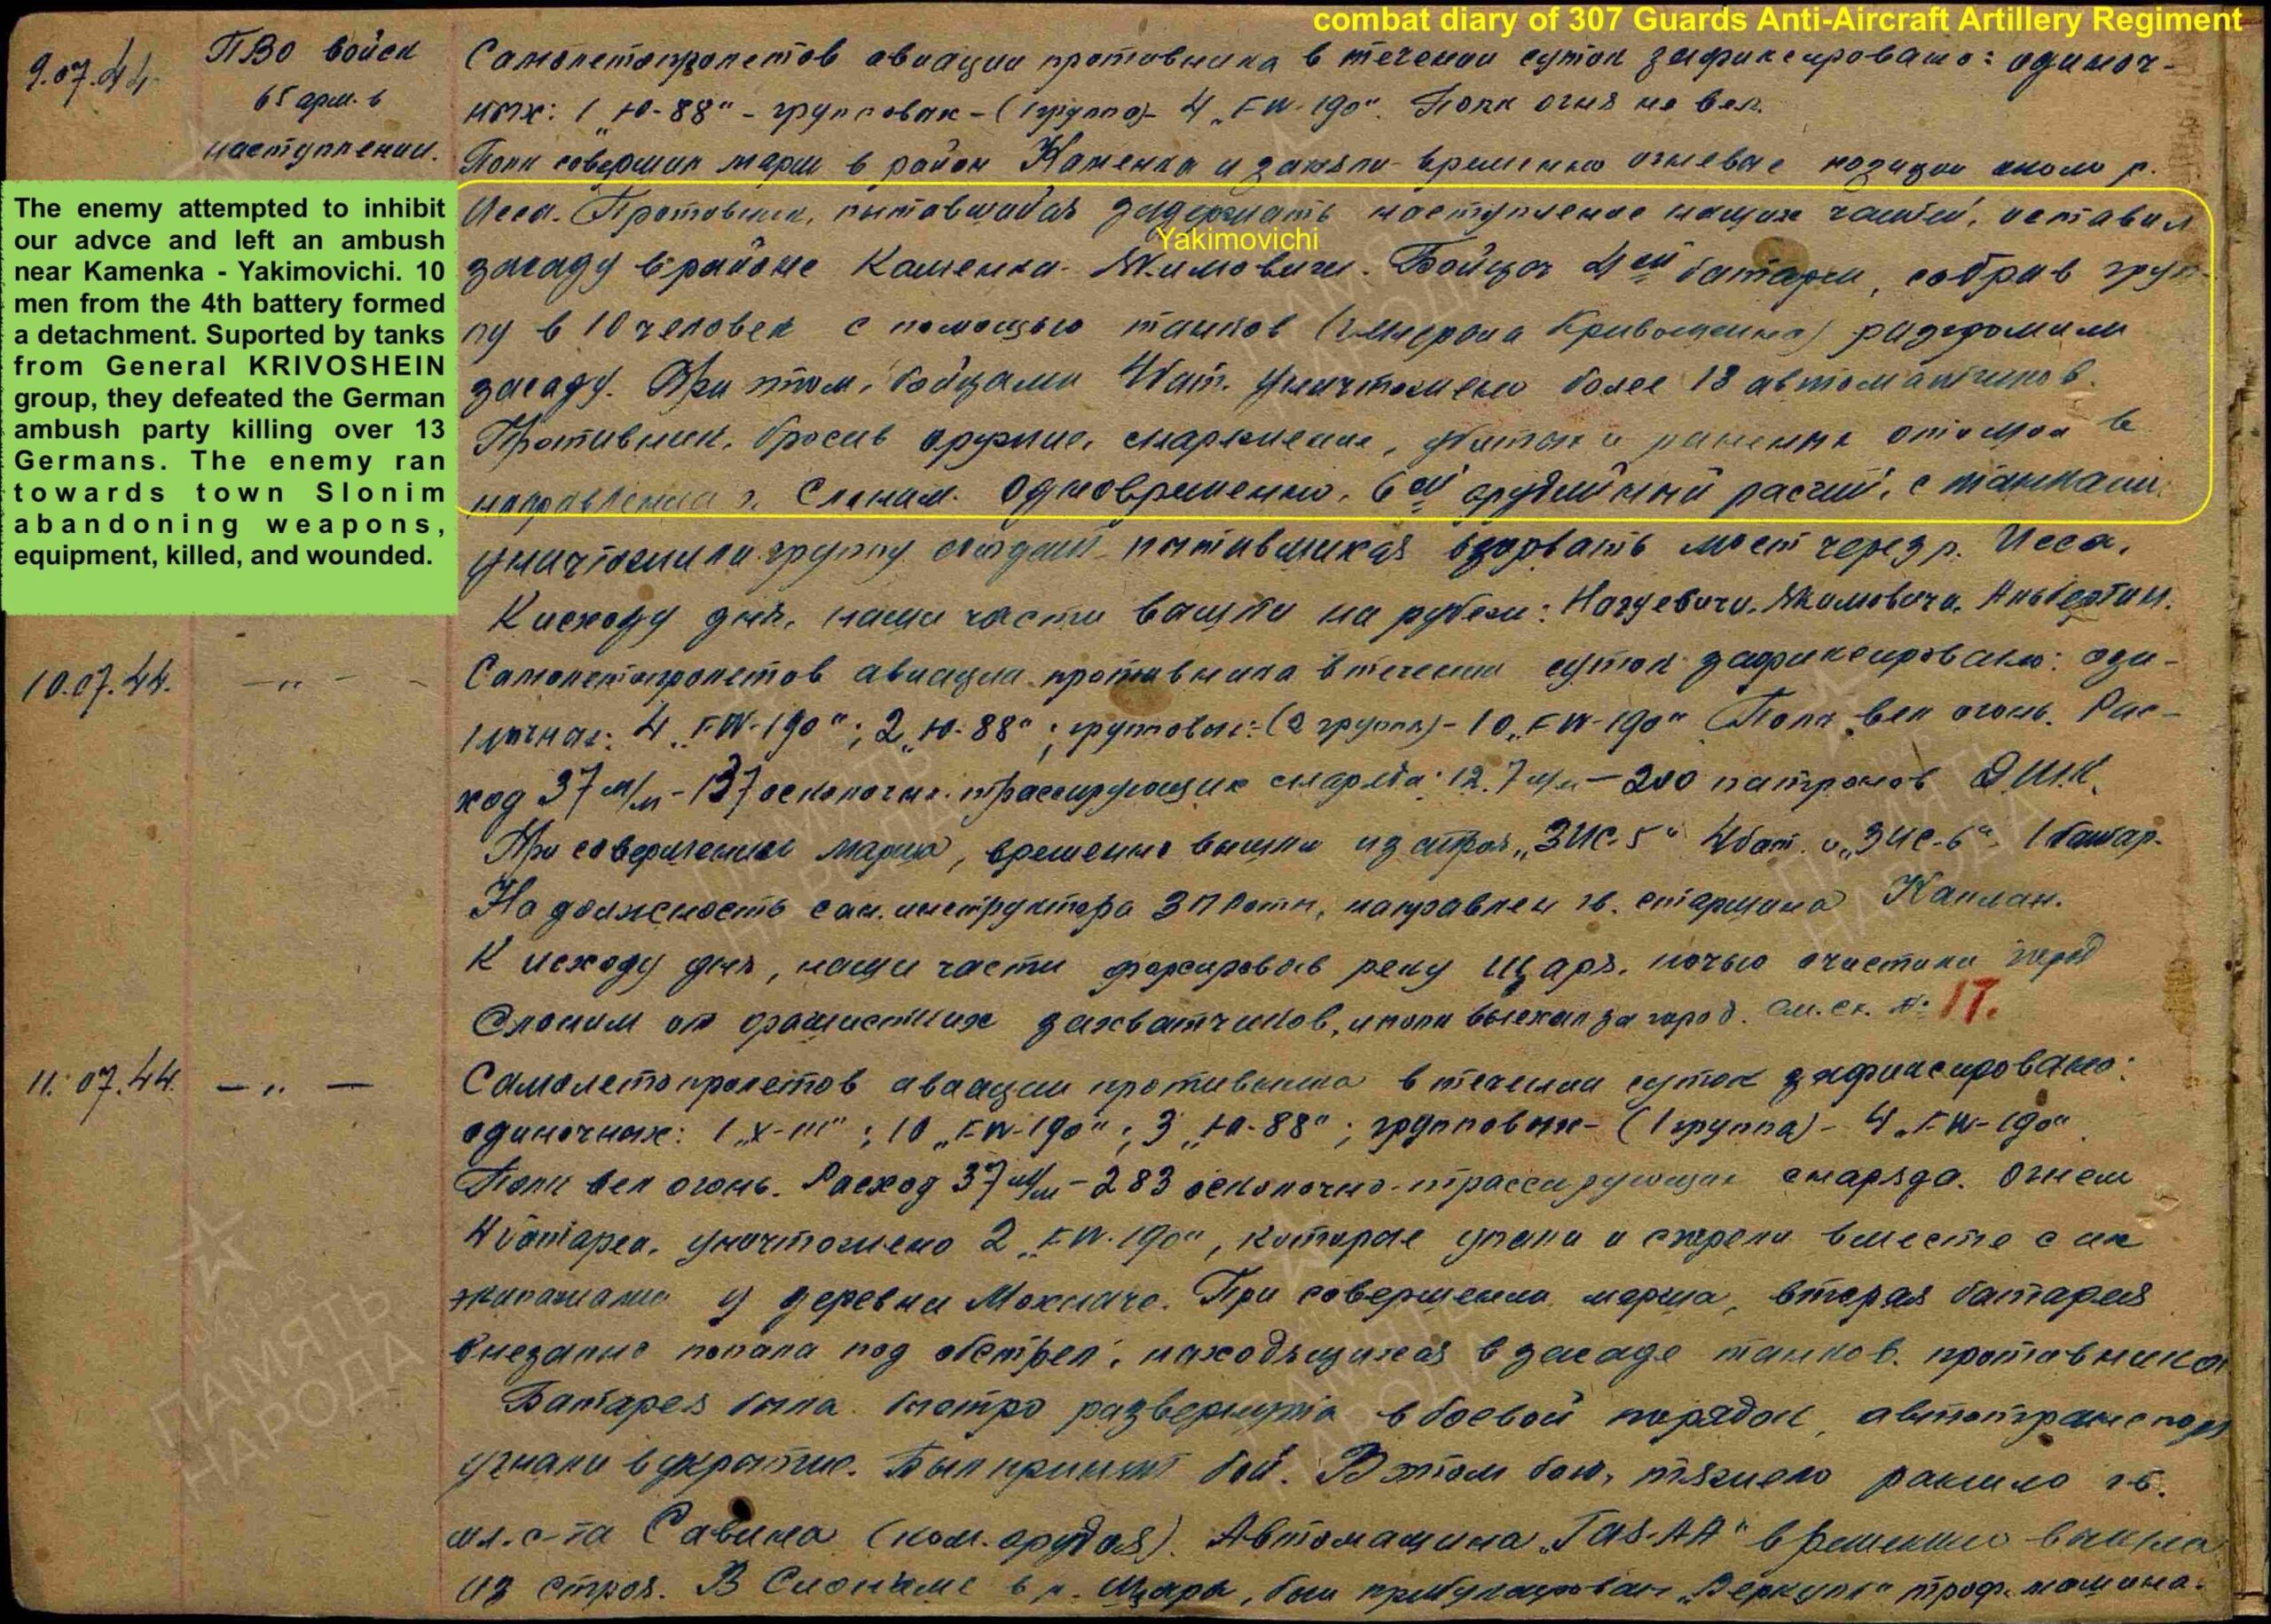 combat diary of 307 Guards Anti-Aircraft Artillery Regiment
9.07.44.
ПВО войск
65 арм. в
наступлении.
Самолетопролетов авиации противника в течении суток зафиксировано: одиноч-
ных: 1 „Ю-88“ - групповых - (1 группа) - 4 „FW-190“. Полк огня не вел.
Полк совершил марш в район Каменка и занял временно огневые позиции около р.
Исса. Противник, пытавшийся задержать наступление наших частей, оставил
засаду в районе Каменка - Якимовичи. Бойцы 4ой батареи, собрав груп-
пу в 10 человек с помощью танков (генерала Кривошеина) разгромили
засаду. При этом, бойцами 4 бат. уничтожено более 13 автоматчиков.
Противник, бросив оружие, снаряжение, убитых и раненых отошел в
направлении г. Слоним. Одновременно, 6ой орудийный расчет, с танками
уничтожили группу солдат пытавшихся взорвать мост через р. Исса.
К исходу дня, наши части вышли на рубеж: Якимовичи, Альбертин.
The enemy attempted to inhibit
our advce and left an ambush
near Kamenka - Yakimovichi. 10
men from the 4th battery formed
a detachment. Suported by tanks
from General KRIVOSHEIN
group, they defeated the German
ambush party killing over 13
Germans. The enemy ran
towards town Slonim
abandoning weapons,
equipment, killed, and wounded.
Yakimovichi
10.07.44.
— „ —
Самолетопролетов авиации противника в течении суток зафиксировано: оди-
ночных: 4 „FW-190“; 2 „Ю-88“; групповых: (2 группы) - 10 „FW-190“ Полк вел огонь. Рас-
ход 37 м/м - 137 осколочно-трассирующих снаряда; 12.7 м/м - 200 патронов ДШК.
При совершении марша, временно вышли из строя „ЗИС-5“ 4 бат. и „ЗИС-6“ 1 батар.
На должность сан. инструктора направлен гв. старшина Каплан.
К исходу дня, наши части форсировав реку Щара, ночью очистили город
Слоним от фашистских захватчиков, и полк выехал за город. См. сх. №: 17.
11.07.44.
— „ —
Самолетопролетов авиации противника в течении суток зафиксировано:
одиночных: 1 „Х-111“; 10 „FW-190“; 3 „Ю-88“; групповых - (1 группа) - 4 „FW-190“
Полк вел огонь. Расход 37 м/м - 283 осколочно-трассирующих снаряда. Огнем
4 батареи, уничтожено 2 „FW-190“, которые упали и сгорели вместе с их
экипажами у деревни При совершении марша, вторая батарея
внезапно попала под обстрел, находящихся в засаде танков противника
Батарея была быстро развернута в боевой порядок, автотранспорт
угнали в укрытие. Был принят бой. В этом бою, тяжело ранило гв.
мл. с-та Савина (ком. орудия). Автомашина „Газ-АА“ временно вышла
из строя. В Слониме в р. Щара, был троф. машина.
ПАМЯТЬ
НАРОДА